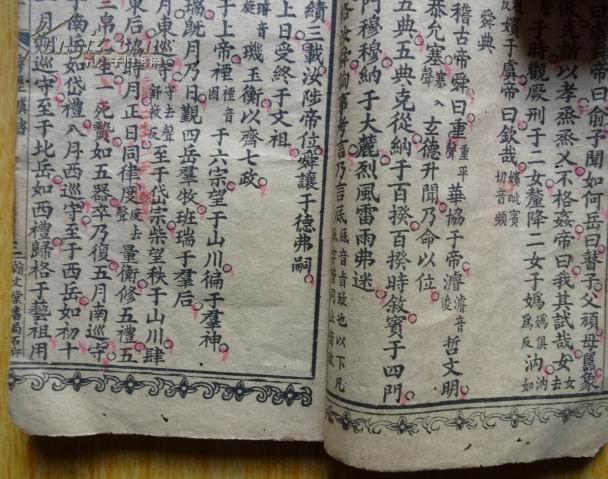 曰虞舜帝曰俞予聞如何岳曰瞽子父頑母嚚象
傲克諧以孝烝烝乂不格姦帝曰我其試哉女去
于時觀厥刑于二女釐降二女于嬀嬀俱為反汭汭如
嬪于虞帝曰欽哉嬪毗賓切音頻
舜典
稽古帝舜曰重平聲華協于帝濬濬音浚哲文明
恭允塞塞入聲玄德升聞乃命以位
五典五典克從納于百揆百揆時敘賓于四門
門穆穆納于大麓烈風雷雨弗迷
汝舜詢事考言乃言底底音旨致也以下凡
績三載汝陟帝位舜讓于德弗嗣
上日受終于文祖
音旋璣玉衡以齊七政
于上帝禋禋音因于六宗望于山川徧于羣神
瑞既月乃日覲四岳羣牧班瑞于羣后
月東巡守守去聲舒救至于岱宗柴望秩于山川肆
東后協時月正日同律度度去聲量衡修五禮五
三帛二生一死贄如五器卒乃復五月南巡守
于南岳如岱禮八月西巡守至于西岳如初十
一月朔巡守至于北岳如西禮歸格于藝祖用
二 翰文堂書局石印